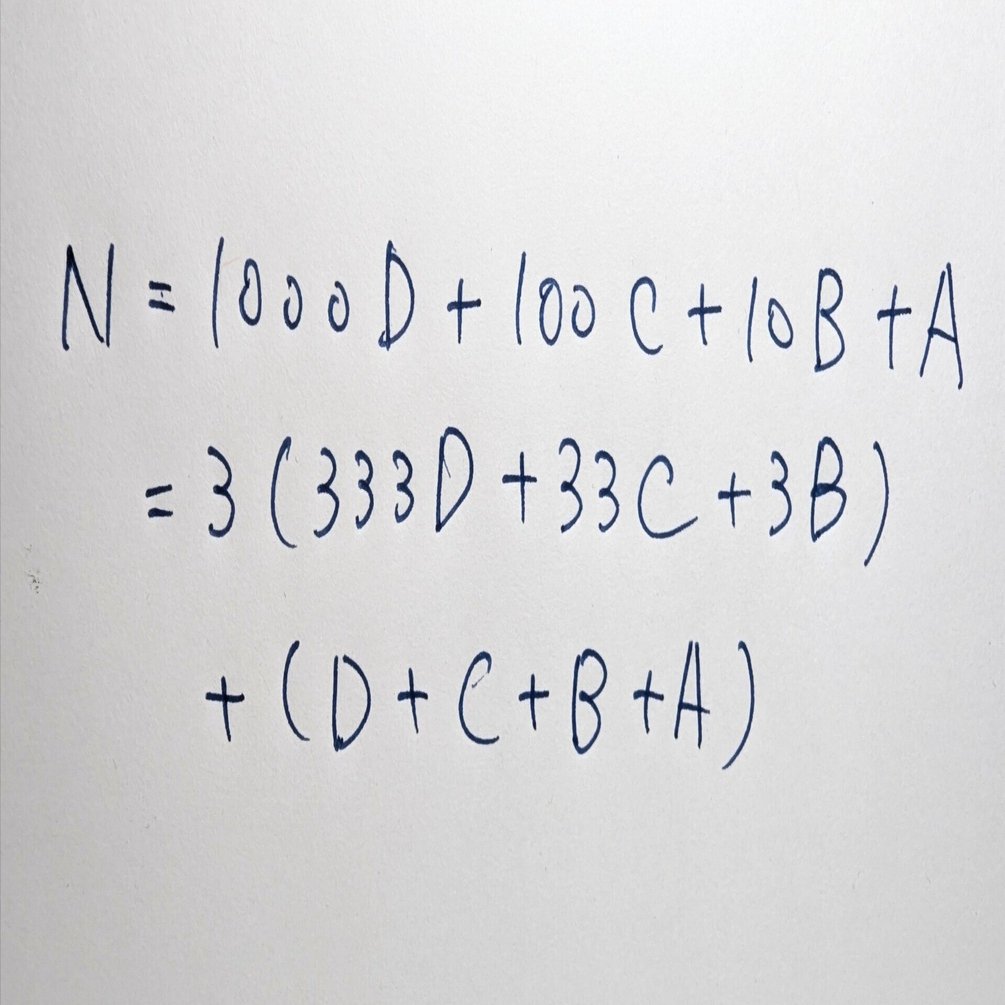 N = 1000D + 100C + 10B + A
= 3 (333D + 33C + 3B)
+ (D + C + B + A)